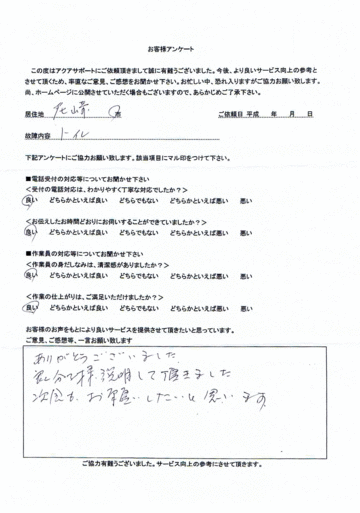 お客様アンケート
この度はアクアサポートにご依頼頂きまして誠に有難うございました。今後、より良いサービス向上の参考と
させて頂くため、率直なご意見、ご感想をお聞かせ下さい。お忙しい中、恐れ入りますがご協力お願い致します。
尚、ホームページに公開させていただく場合もございますので、あらかじめご了承下さい。
居住地 尼崎 様 ご依頼日 平成 年 月 日
故障内容 トイレ
下記アンケートにご協力お願い致します。該当項目にマル印をつけて下さい。
■電話受付の対応等についてお聞かせ下さい
<受付の電話対応は、わかりやすく丁寧な対応でしたか?>
良い どちらかといえば良い どちらでもない どちらかといえば悪い 悪い
<お伝えしたお時間どおりにお伺いすることができていましたか?>
良い どちらかといえば良い どちらでもない どちらかといえば悪い 悪い
■作業員の対応等についてお聞かせ下さい
<作業員の身だしなみは、清潔感がありましたか?>
良い どちらかといえば良い どちらでもない どちらかといえば悪い 悪い
<作業の仕上がりは、ご満足いただけましたか?>
良い どちらかといえば良い どちらでもない どちらかといえば悪い 悪い
お客様のお声をもとにより良いサービスを提供させて頂きたいと思っています。
ご意見、ご感想等、一言お願い致します
ありがとうございました
説明して頂きました
次回も、お願いしたいと思います
ご協力有難うございました。サービス向上の参考にさせて頂きます。